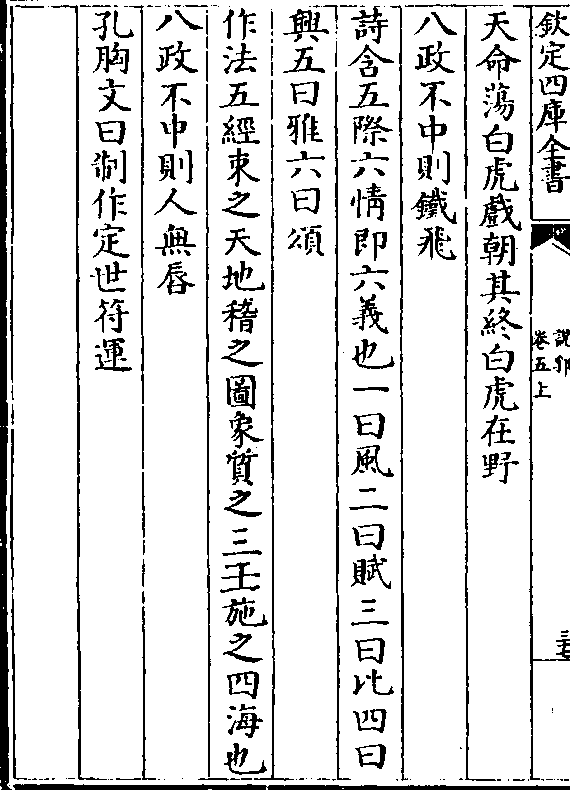 欽定四庫全書
說郛
卷五上
天命蕩白虎戲朝其終白虎在野
八政不中則鐵飛
詩含五際六情即六義也一曰風二曰賦三曰比四曰
興五曰雅六曰頌
作法五經束之天地稽之圖象質之三王施之四海也
八政不中則人無唇
孔胸文曰制作定世符運